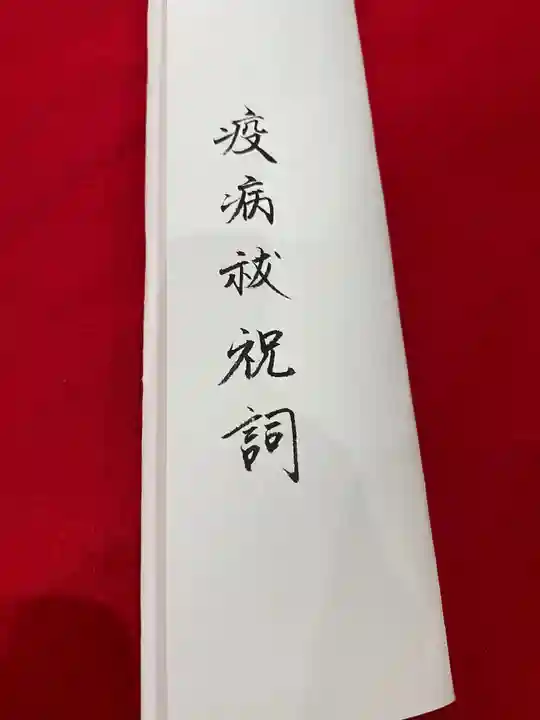 疫病祓祝詞